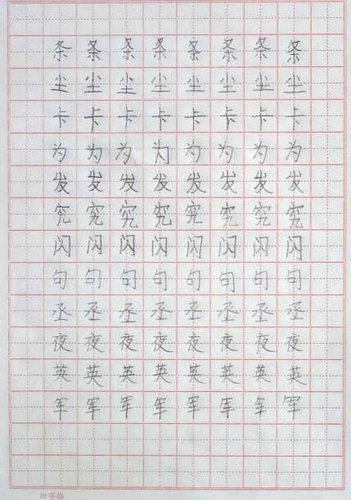 条条条条条条条条
尘尘尘尘尘尘尘尘
卡卡卡卡卡卡卡卡
为为为为为为为为
发发发发发发发发
究究究究究究究究
闪闪闪闪闪闪闪闪
句句句句句句句句
丞丞丞丞丞丞丞丞
夜夜夜夜夜夜夜夜
英英英英英英英英
军军军军军军军军
田字格